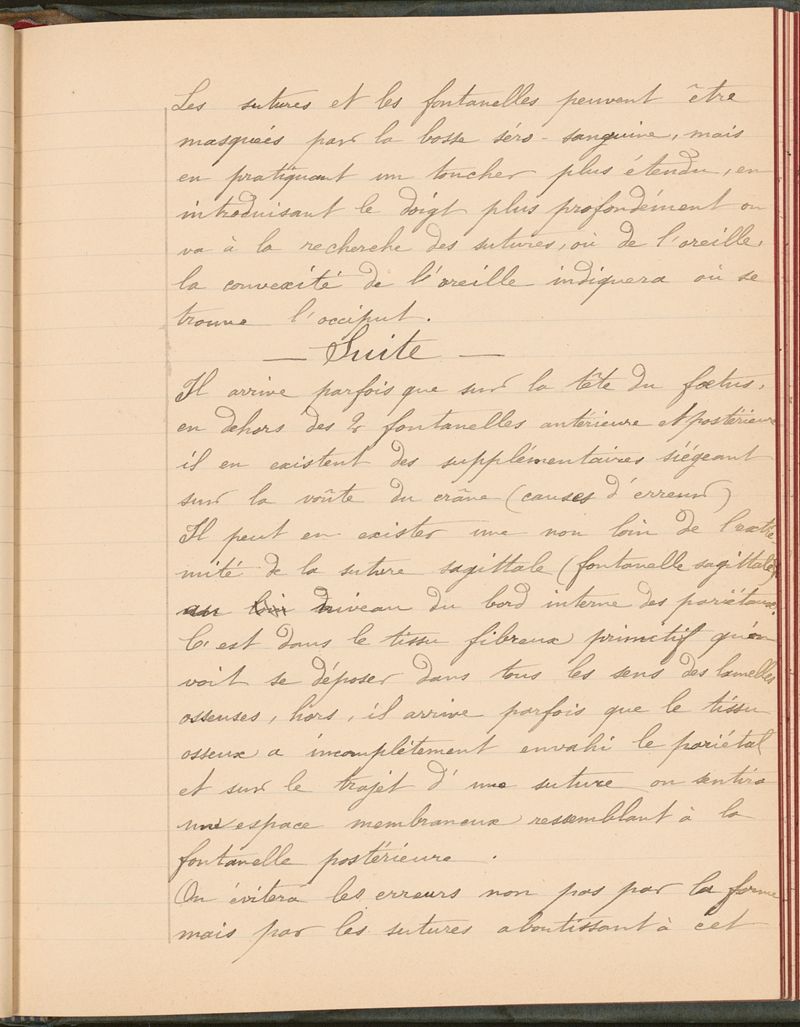 Les sutures et les fontanelles peuvent être
masquées par la bosse séro-sanguine, mais
en pratiquant un toucher plus étendu, en
introduisant le doigt plus profondément on
va à la recherche des sutures, où de l'oreille,
la convexité de l'oreille indiquera où se
trouve l'occiput.
— Suite —
Il arrive parfois que sur la tête du fœtus,
en dehors des 2 fontanelles antérieure et postérieure
il en existent des supplémentaires siégeant
sur la voûte du crâne (causes d'erreur)
Il peut en exister une non loin de l'extré-
mité de la suture sagittale (fontanelle sagittale)
au niveau du bord interne des pariétaux.
C'est dans le tissu fibreux primitif qu'on
voit se déposer dans tous les sens des lamelles
osseuses, hors, il arrive parfois que le tissu
osseux a incomplètement envahi le pariétal
et sur le trajet d'une suture on sentira
un espace membraneux ressemblant à la
fontanelle postérieure.
On évitera les erreurs non pas par la forme
mais par les sutures aboutissant à cet